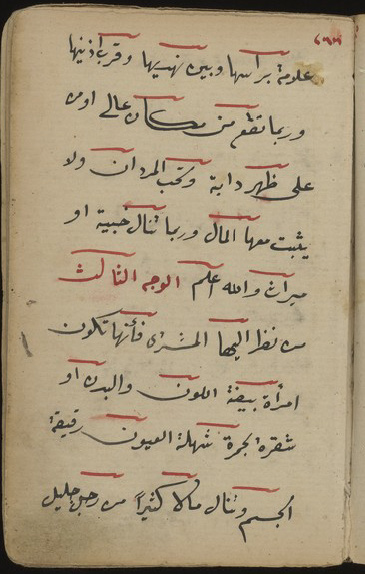 علامة براسها وبين نهديها وقرب اذنيها
وربما تقع من مكان عالى او من
على ظهر دابة وتحب المردان ولا
يثبت معها المال وربما تنال خبية او
ميراث والله اعلم الوجه الثالث
من نظر اليها المشترى فأنها تكون
امرأة بيضة اللون والبدن او
شقرة بحمرة شهلة العيون رقيقة
الجسم وتنال مالا كثيراً من رجل جليل